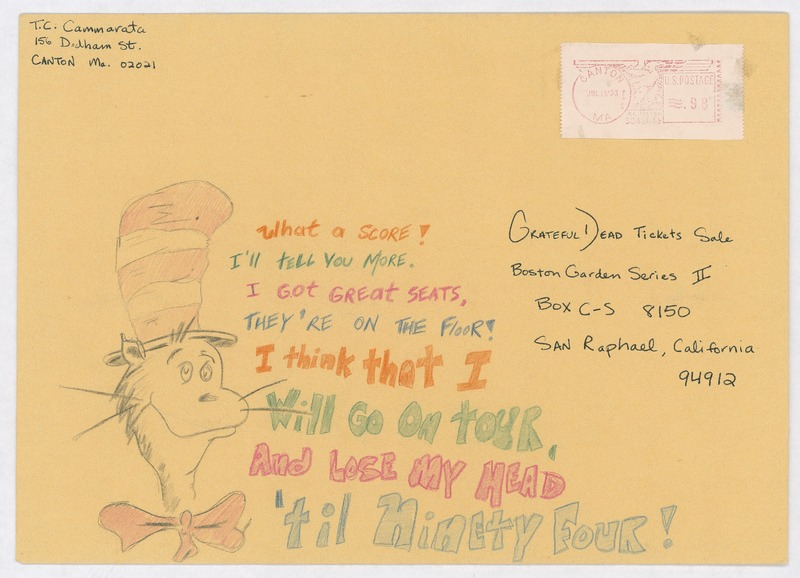 T.C. Cammarata
156 Dedham St.
CANTON Ma. 02021
CANTON
MA
U.S. POSTAGE
.98
What a SCORE!
I'll tELL YOU MORE.
I Got GREat SEATS,
THEY'RE ON THE FlooR!
I think that I
Will Go On touR,
And LOSE MY HEAD
'til Ninety FOUR!
GRATEFUL DEAD Tickets Sale
Boston Garden Series II
Box C-S 8150
SAN Raphael, California
94912